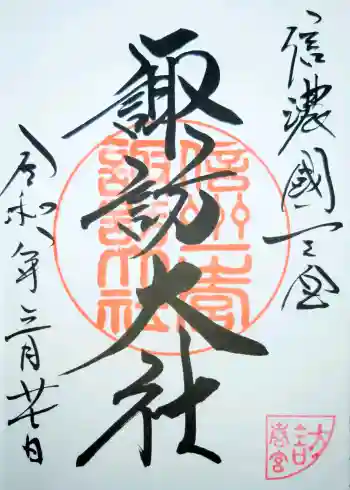 信濃國一之宮
諏訪大社
令和八年三月廿七日
信州一宮
諏訪大社
春宮